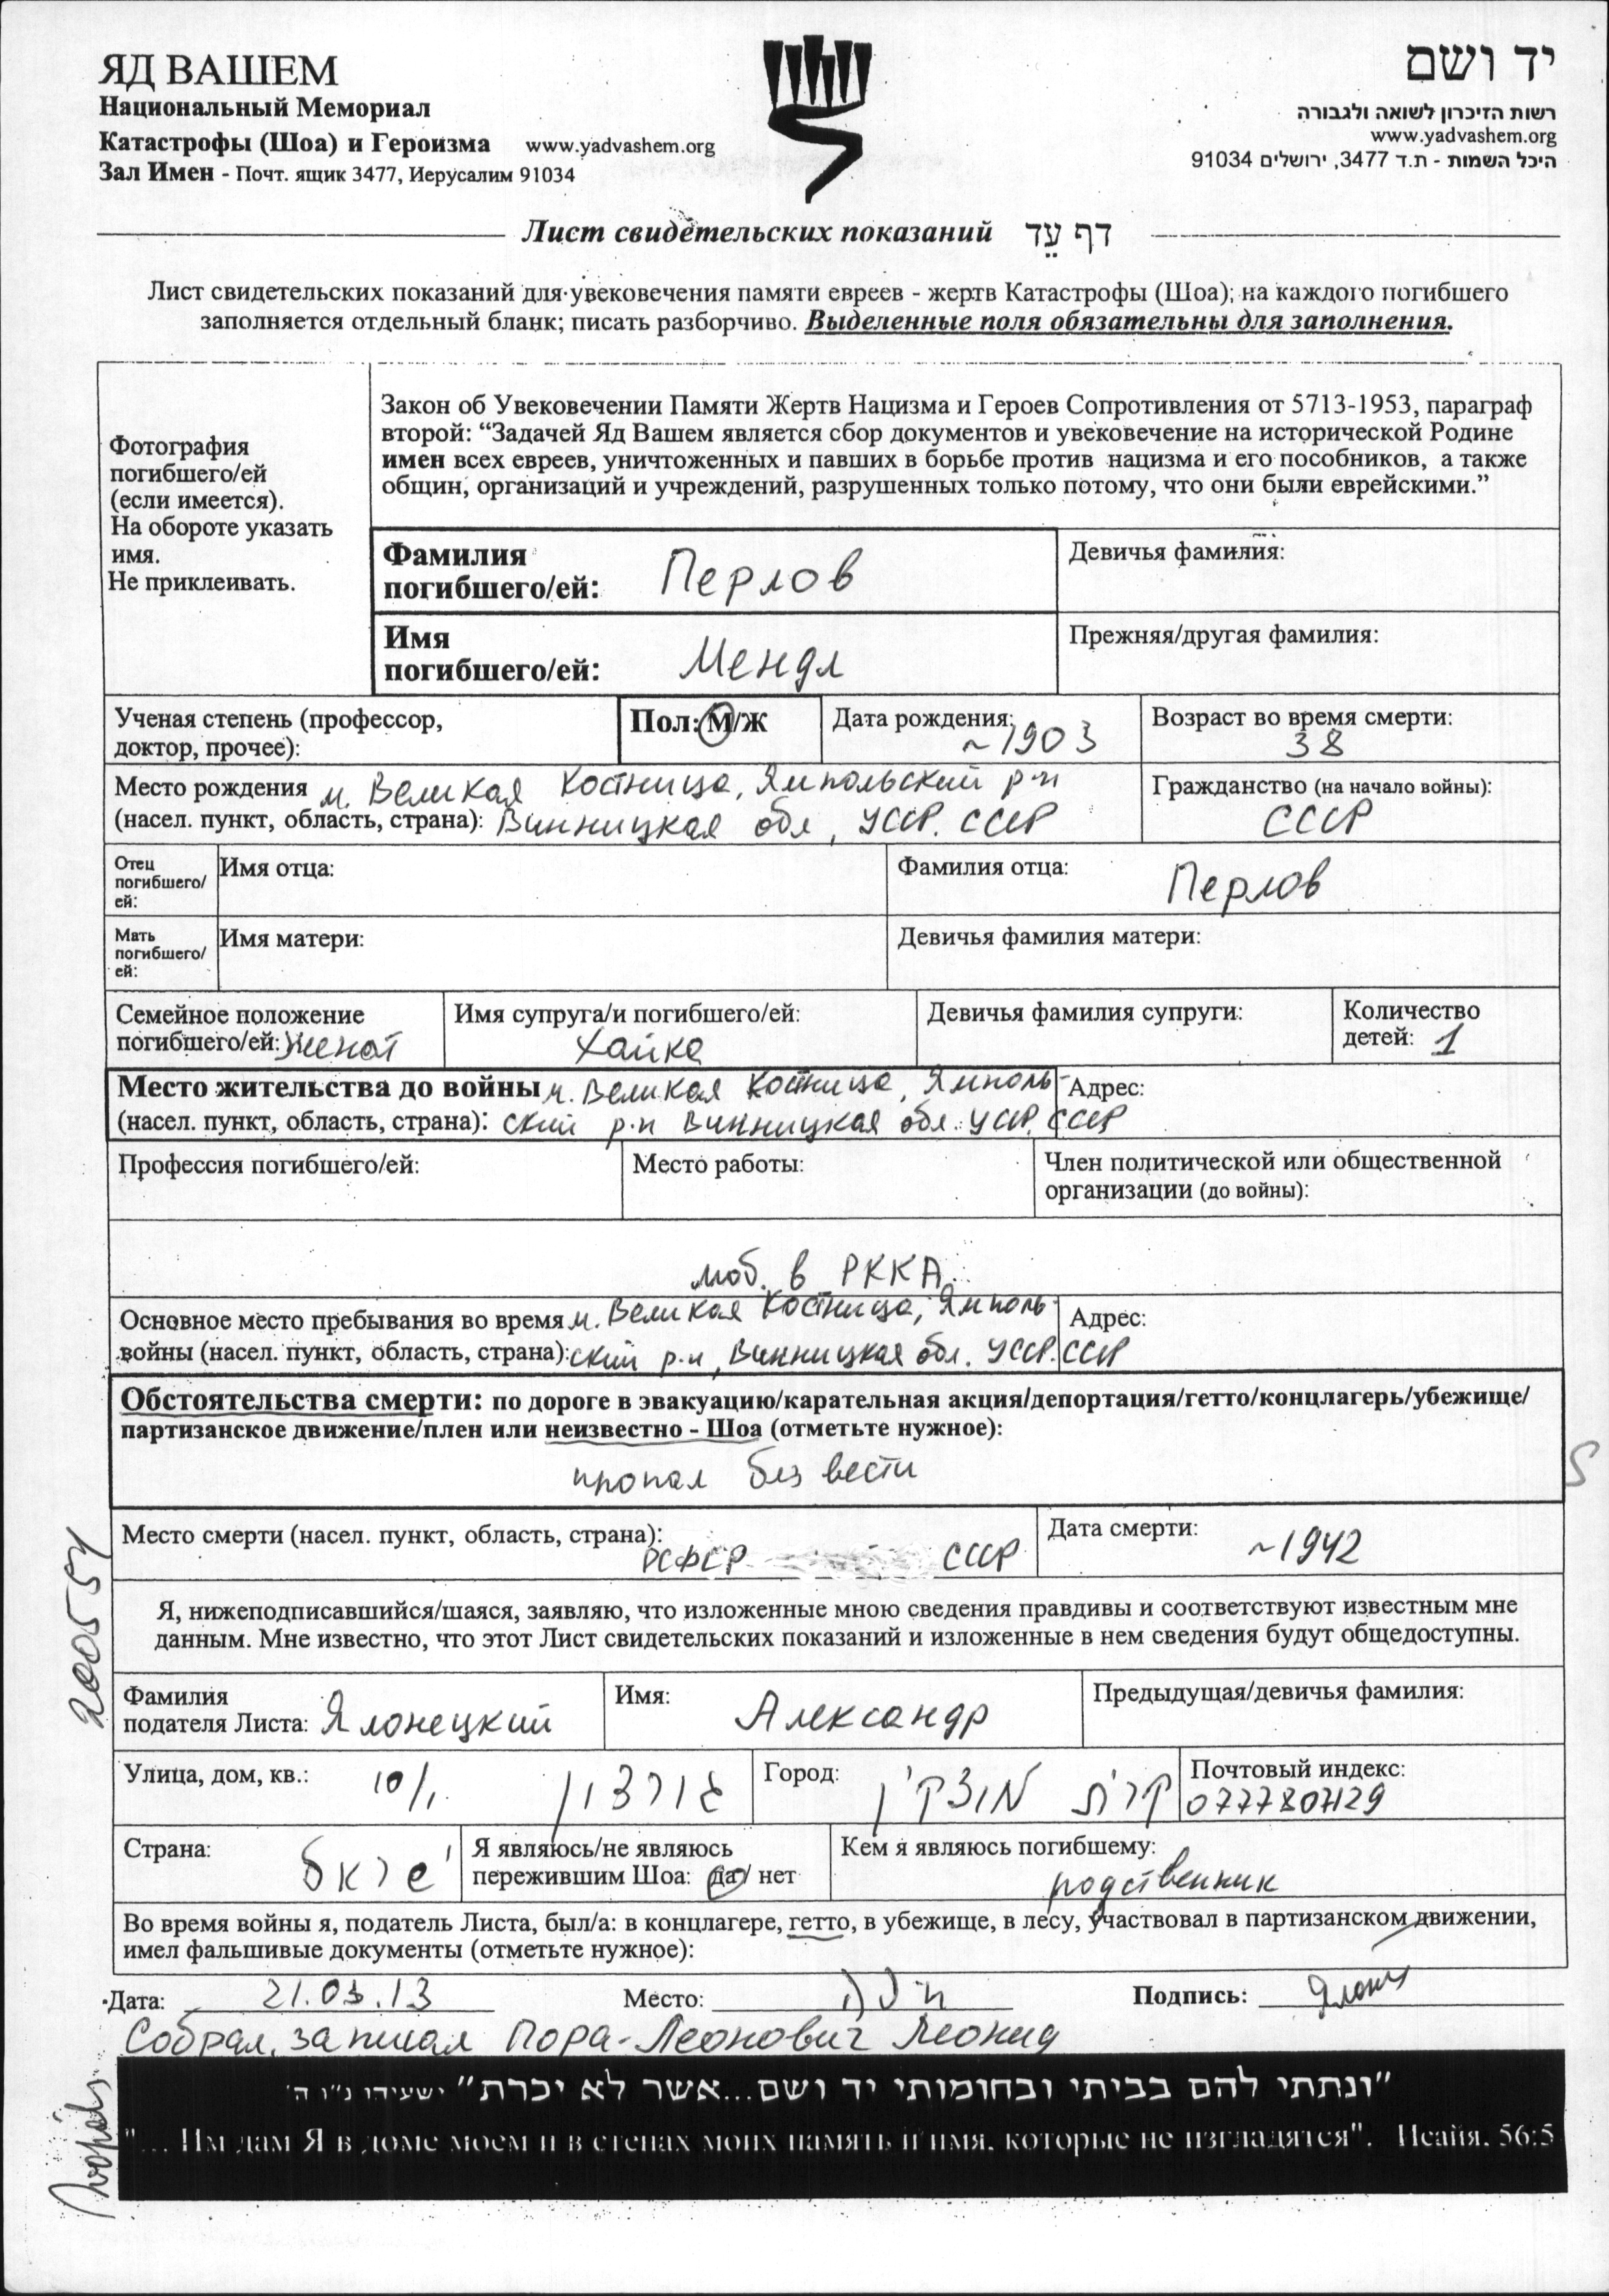 ЯД ВАШЕМ
Национальный Мемориал
Катастрофы (Шоа) и Героизма www.yadvashem.org
Зал Имен - Почт. ящик 3477, Иерусалим 91034
יד ושם
רשות הזיכרון לשואה ולגבורה
www.yadvashem.org
היכל השמות - ת.ד 3477, ירושלים 91034
Лист свидетельских показаний דף עֵד
Лист свидетельских показаний для увековечения памяти евреев - жертв Катастрофы (Шоа); на каждого погибшего
заполняется отдельный бланк; писать разборчиво. Выделенные поля обязательны для заполнения.
Фотография
погибшего/ей
(если имеется).
На обороте указать
имя.
Не приклеивать.
Закон об Увековечении Памяти Жертв Нацизма и Героев Сопротивления от 5713-1953, параграф
второй: “Задачей Яд Вашем является сбор документов и увековечение на исторической Родине
имен всех евреев, уничтоженных и павших в борьбе против нацизма и его пособников, а также
общин, организаций и учреждений, разрушенных только потому, что они были еврейскими.”
Фамилия
погибшего/ей: Перлов
Девичья фамилия:
Имя
погибшего/ей: Мендл
Прежняя/другая фамилия:
Ученая степень (профессор,
доктор, прочее):
Пол: М/Ж
Дата рождения: ~1903
Возраст во время смерти:
38
Место рождения м. Великая Костница, Ямпольский р-н
(насел. пункт, область, страна): Винницкая обл, УССР. СССР
Гражданство (на начало войны):
СССР
Отец
погибшего/
ей:
Имя отца:
Фамилия отца: Перлов
Мать
погибшего/
ей:
Имя матери:
Девичья фамилия матери:
Семейное положение
погибшего/ей: женат
Имя супруга/и погибшего/ей:
Хайка
Девичья фамилия супруги:
Количество
детей: 1
Место жительства до войны м. Великая Костница, Ямполь-
(насел. пункт, область, страна): ский р-н Винницкая обл. УССР. СССР
Адрес:
Профессия погибшего/ей:
Место работы:
Член политической или общественной
организации (до войны):
моб. в РККА
Основное место пребывания во время м. Великая Костница, Ямполь-
войны (насел. пункт, область, страна): ский р-н, Винницкая обл. УССР. СССР
Адрес:
Обстоятельства смерти: по дороге в эвакуацию/карательная акция/депортация/гетто/концлагерь/убежище/
партизанское движение/плен или неизвестно - Шоа (отметьте нужное):
пропал без вести
S
Место смерти (насел. пункт, область, страна):
РСФСР СССР
Дата смерти: ~1942
200554
Я, нижеподписавшийся/шаяся, заявляю, что изложенные мною сведения правдивы и соответствуют известным мне
данным. Мне известно, что этот Лист свидетельских показаний и изложенные в нем сведения будут общедоступны.
Фамилия
подателя Листа: Ялонецкий
Имя: Александр
Предыдущая/девичья фамилия:
Улица, дом, кв.: גורדון 10/1
Город: קרית מוצקין
Почтовый индекс:
0777807129
Страна: ישראל
Я являюсь/не являюсь
пережившим Шоа: да/ нет
Кем я являюсь погибшему:
родственник
Во время войны я, податель Листа, был/а: в концлагере, гетто, в убежище, в лесу, участвовал в партизанском движении,
имел фальшивые документы (отметьте нужное):
Дата: 21.03.13 Место: חיפה Подпись:
Собрал, записал Пора-Леонович Леонид
”ונתתי להם בביתי ובחומותי יד ושם...אשר לא יכרת” ישעיהו נ"ו ה'
"... Им дам Я в доме моем и в стенах моих память и имя, которые не изгладятся". Исайя, 56:5